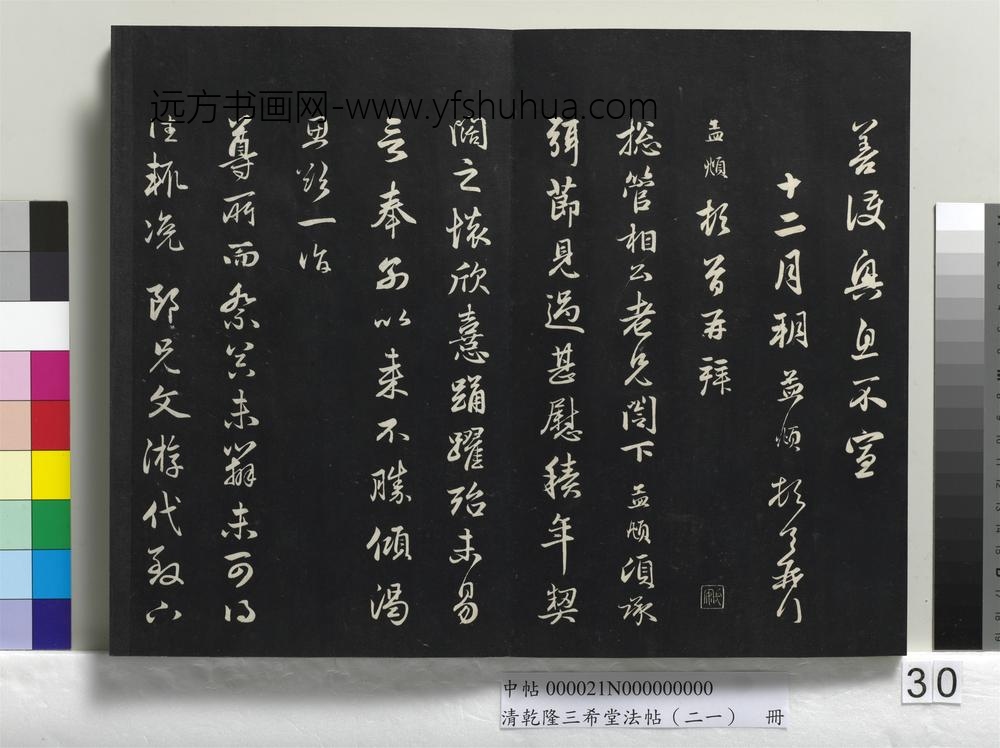 善護興息不宣
十二月朔孟頫頓首再拜
孟頫頓首再拜
總管相公老兄閤下孟頫頃承
弭節見過甚慰積年契
闊之懷欣憙踊躍殆未易
言奉別以來不勝傾渴
思欲一詣
尊所而祭葬未辦未可得
文游代致
远方书画网-www.yfshuhua.com
中帖 000021N000000000
清乾隆三希堂法帖（二一） 冊
30